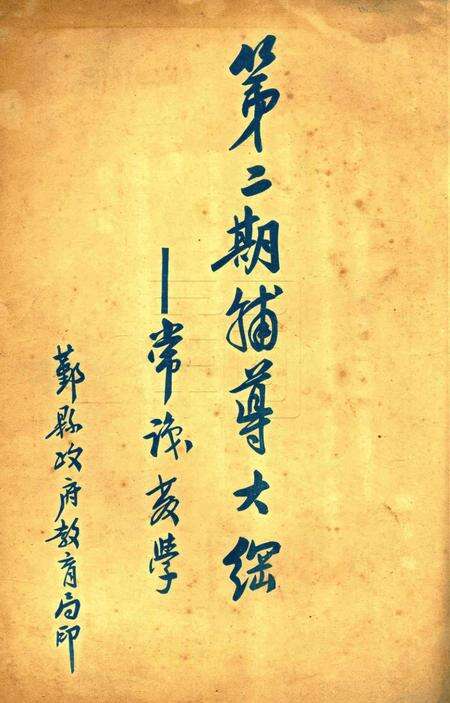 第二期輔導大綱
—常識教學
鄞縣政府教育局印